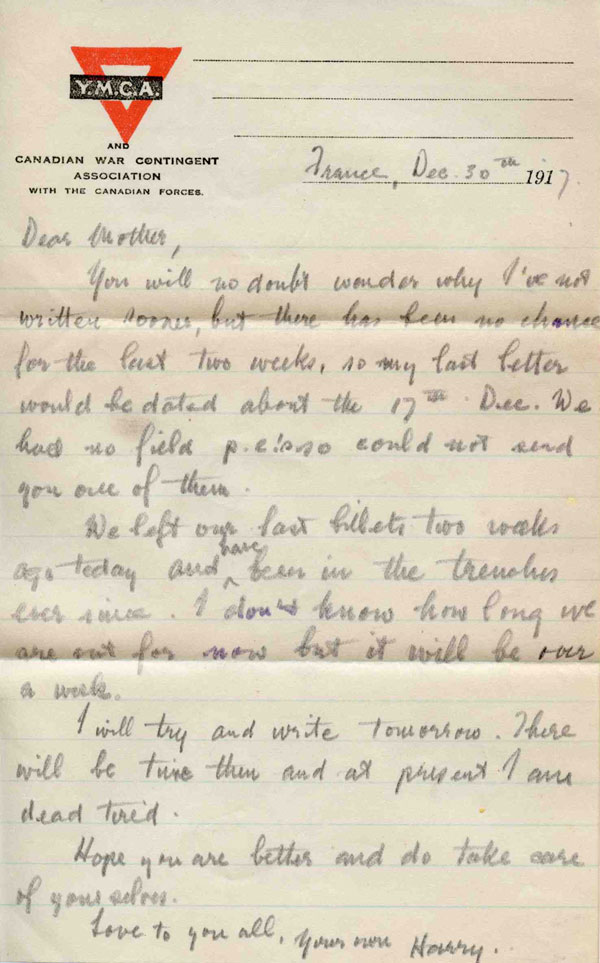 Y.M.C.A.
AND
CANADIAN WAR CONTINGENT
ASSOCIATION
WITH THE CANADIAN FORCES.
France, Dec. 30th 1917.
Dear Mother,
You will no doubt wonder why I've not
written sooner, but there has been no chance
for the last two weeks, so my last letter
would be dated about the 17th Dec. We
had no field p.c.'s so could not send
you one of them.
We left our last billets two weeks
ago today and have been in the trenches
ever since. I don't know how long we
are out for now but it will be over
a week.
I will try and write tomorrow. There
will be time then and at present I am
dead tired.
Hope you are better and do take care
of yourselves.
Love to you all, Your own Harry.